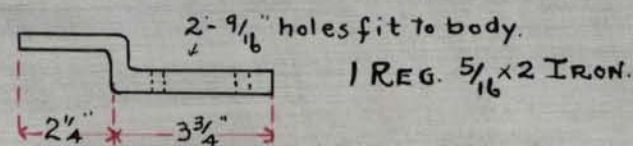 2 - 9/16" holes fit to body.
1 REG. 5/16 x 2 IRON.
2 1/4" 3 3/4"